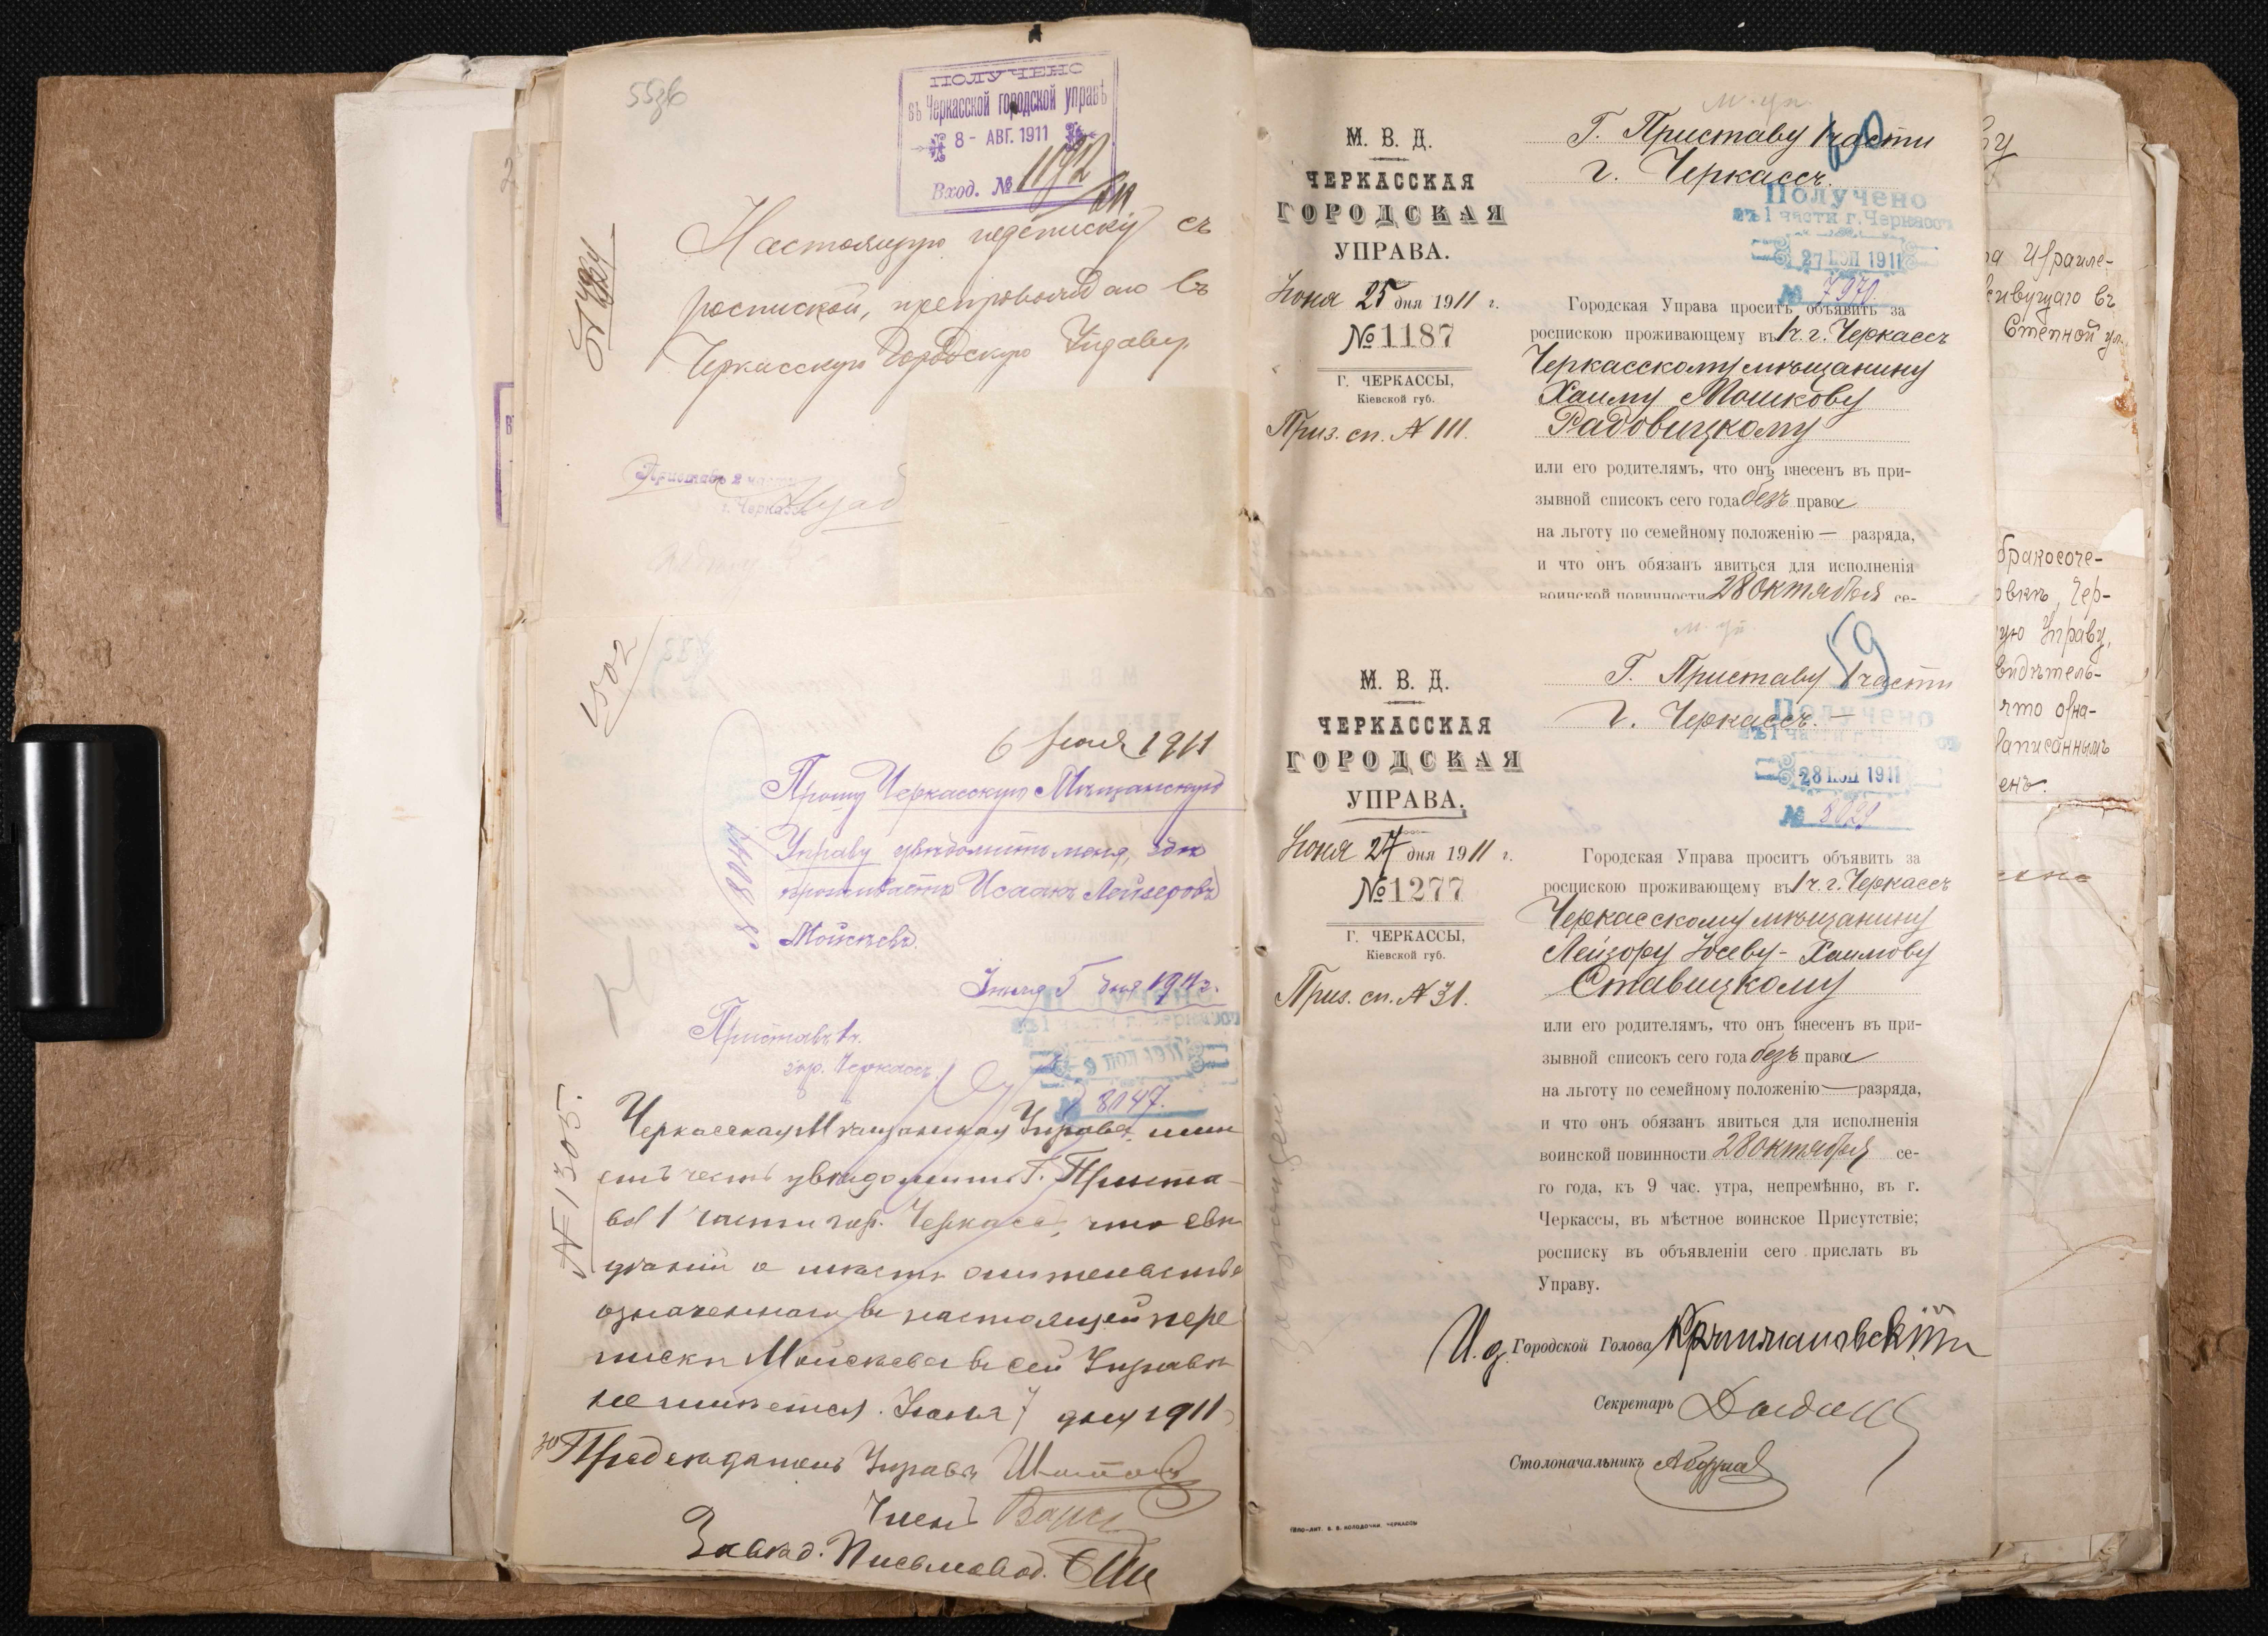 55об
ПОЛУЧЕНО
въ Черкасской городской управѣ
8 - АВГ. 1911
Вход. №
Настоящую подписку съ
роспиской, препровождаю въ
Черкасскую Городскую Управу.
Приставъ 2 части
г. Черкассъ
1502
6 Іюля 1911
Прошу Черкасскую Мѣщанскую
Управу увѣдомить меня, гдѣ
проживаетъ Исаакъ Лейзеровъ
Моисѣевъ.
№ 8047
5 дня 1911 г.
Приставъ 1 ч.
гор. Черкассъ
№ 8047.
№ 1305.
Черкасская Мѣщанская Управа имѣ
етъ честь увѣдомить Г. Приста-
ва 1 части гор. Черкассъ, что свѣ
дѣній о мѣстѣ жительства
означеннаго въ настоящей пере
пискѣ Моисѣева въ сей Управѣ
не имѣется. 7 дня 1911
за Предсѣдатель Управы
Членъ
Завѣд. Письмовод.
М. В. Д.
ЧЕРКАССКАЯ
ГОРОДСКАЯ
УПРАВА.
Іюня 25 дня 1911 г.
№ 1187
Г. ЧЕРКАССЫ,
Кіевской губ.
Приз. сп. № 111.
60
Г. Приставу 1 части
г. Черкассъ.
Получено
въ 1 части г. Черкассъ
27 1911
№ 7970.
Городская Управа проситъ объявить за
роспискою проживающему въ 1 ч. г. Черкассъ
Черкасскому мѣщанину
Хаиму Мошкову
Радовицкому
или его родителямъ, что онъ внесенъ въ при-
зывной списокъ сего года безъ права
на льготу по семейному положенію — разряда,
и что онъ обязанъ явиться для исполненія
воинской повинности 28 октября се-
М. В. Д.
ЧЕРКАССКАЯ
ГОРОДСКАЯ
УПРАВА.
Іюня 27 дня 1911 г.
№ 1277
Г. ЧЕРКАССЫ,
Кіевской губ.
Приз. сп. № 31.
59
Г. Приставу 1 части
г. Черкассъ. —
Получено
въ 1 части г.
28 1911
№ 8029
Городская Управа проситъ объявить за
роспискою проживающему въ 1 ч. г. Черкассъ
Черкасскому мѣщанину
Лейзору Іосеву-Хаимову
Ставицкому
или его родителямъ, что онъ внесенъ въ при-
зывной списокъ сего года безъ права
на льготу по семейному положенію — разряда,
и что онъ обязанъ явиться для исполненія
воинской повинности 28 октября се-
го года, къ 9 час. утра, непремѣнно, въ г.
Черкассы, въ мѣстное воинское Присутствіе;
росписку въ объявленіи сего прислать въ
Управу.
И. д. Городской Голова
Секретарь
Столоначальникъ
ТИПО-ЛИТ. В. В. КОЛОДОЧКИ, ЧЕРКАССЫ
Израиле-
въ
Степной ул.
бракосоче-
Чер-
Управу,
что озна-